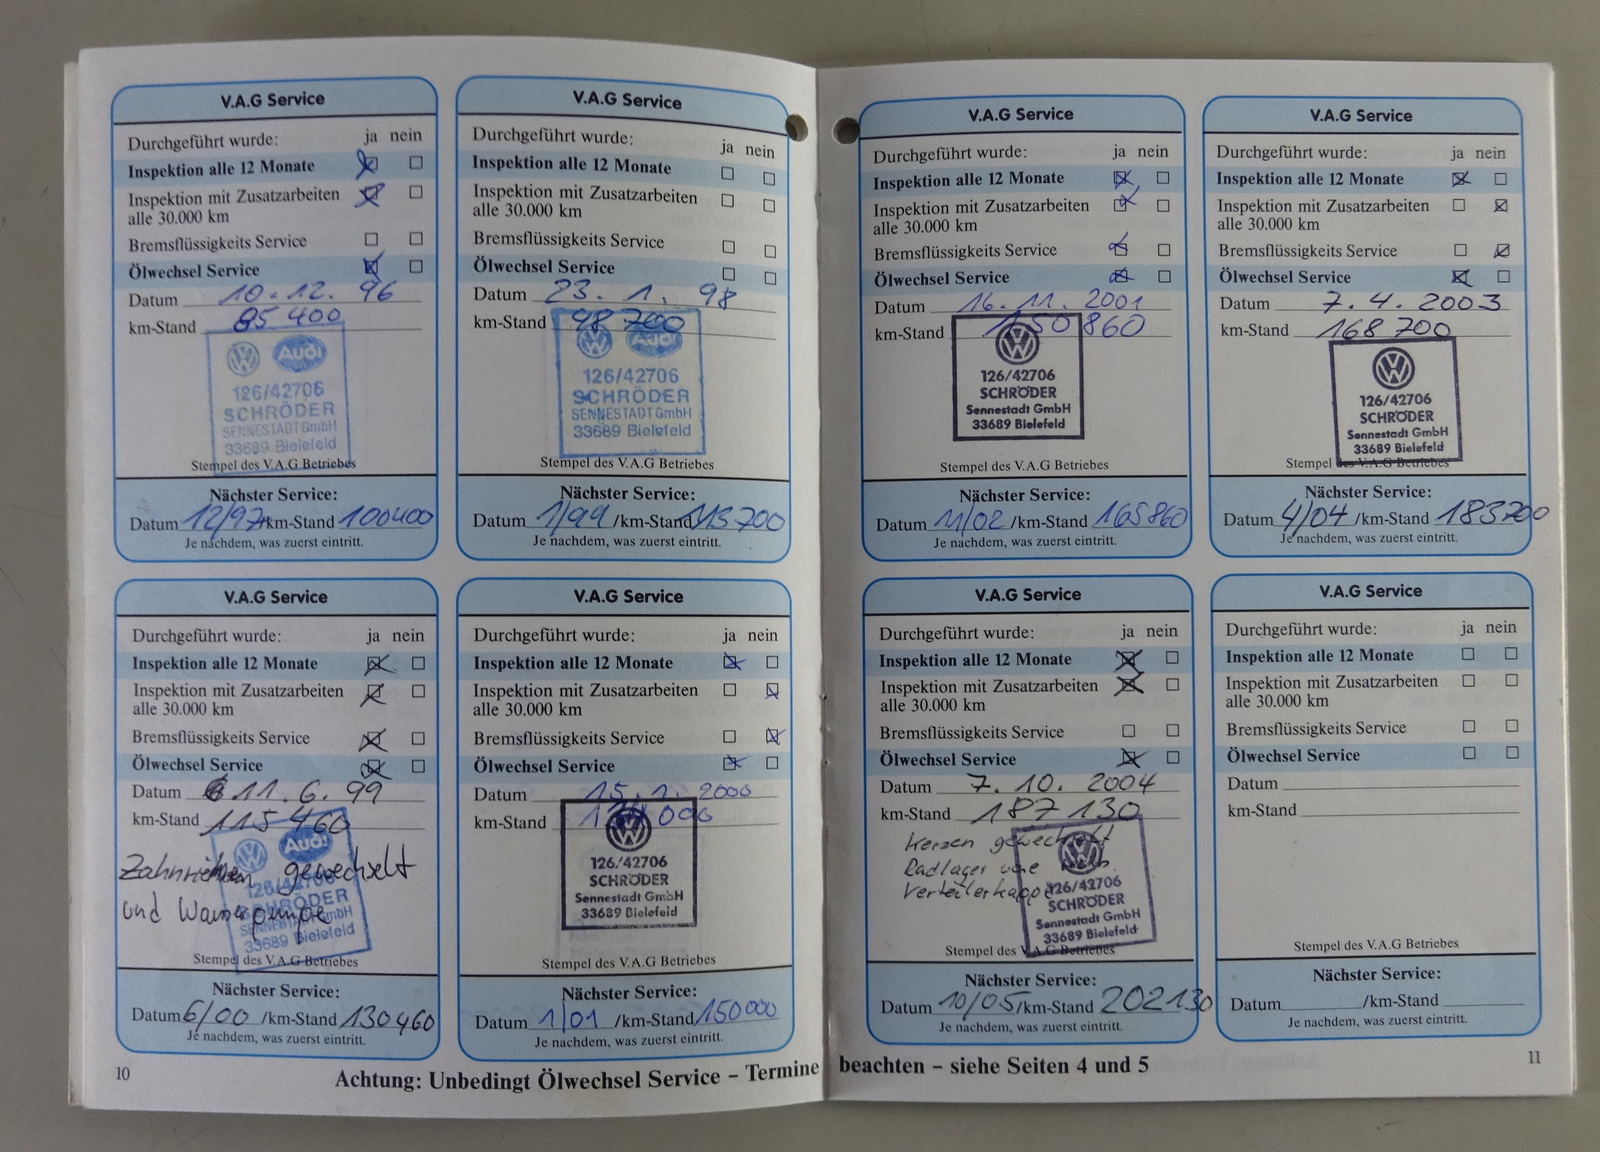 V.A.G Service
Durchgeführt wurde: ja nein
Inspektion alle 12 Monate
Inspektion mit Zusatzarbeiten
alle 30.000 km
Bremsflüssigkeits Service
Ölwechsel Service
Datum 10.12.96
km-Stand 85 400
Audi
126/42706
SCHRÖDER
SENNESTADT GmbH
33689 Bielefeld
Stempel des V.A.G Betriebes
Nächster Service:
Datum 12/97/km-Stand 100400
Je nachdem, was zuerst eintritt.
V.A.G Service
Durchgeführt wurde: ja nein
Inspektion alle 12 Monate
Inspektion mit Zusatzarbeiten
alle 30.000 km
Bremsflüssigkeits Service
Ölwechsel Service
Datum 23.1.98
km-Stand 98 700
Audi
126/42706
SCHRÖDER
SENNESTADT GmbH
33689 Bielefeld
Stempel des V.A.G Betriebes
Nächster Service:
Datum 1/99/km-Stand 113 700
Je nachdem, was zuerst eintritt.
V.A.G Service
Durchgeführt wurde: ja nein
Inspektion alle 12 Monate
Inspektion mit Zusatzarbeiten
alle 30.000 km
Bremsflüssigkeits Service
Ölwechsel Service
Datum 11.6.99
km-Stand 115 460
Zahnriemen gewechselt
und Wasserpumpe
Audi
126/42706
SCHRÖDER
SENNESTADT GmbH
33689 Bielefeld
Stempel des V.A.G Betriebes
Nächster Service:
Datum 6/00/km-Stand 130460
Je nachdem, was zuerst eintritt.
V.A.G Service
Durchgeführt wurde: ja nein
Inspektion alle 12 Monate
Inspektion mit Zusatzarbeiten
alle 30.000 km
Bremsflüssigkeits Service
Ölwechsel Service
Datum 15.1.2000
km-Stand
126/42706
SCHRÖDER
Sennestadt GmbH
33689 Bielefeld
Stempel des V.A.G Betriebes
Nächster Service:
Datum 1/01/km-Stand 150000
Je nachdem, was zuerst eintritt.
10
V.A.G Service
Durchgeführt wurde: ja nein
Inspektion alle 12 Monate
Inspektion mit Zusatzarbeiten
alle 30.000 km
Bremsflüssigkeits Service
Ölwechsel Service
Datum 16.11.2001
km-Stand 150 860
126/42706
SCHRÖDER
Sennestadt GmbH
33689 Bielefeld
Stempel des V.A.G Betriebes
Nächster Service:
Datum 11/02/km-Stand 165860
Je nachdem, was zuerst eintritt.
V.A.G Service
Durchgeführt wurde: ja nein
Inspektion alle 12 Monate
Inspektion mit Zusatzarbeiten
alle 30.000 km
Bremsflüssigkeits Service
Ölwechsel Service
Datum 7.4.2003
km-Stand 168 700
126/42706
SCHRÖDER
Sennestadt GmbH
33689 Bielefeld
Stempel des V.A.G Betriebes
Nächster Service:
Datum 4/04/km-Stand 183700
Je nachdem, was zuerst eintritt.
V.A.G Service
Durchgeführt wurde: ja nein
Inspektion alle 12 Monate
Inspektion mit Zusatzarbeiten
alle 30.000 km
Bremsflüssigkeits Service
Ölwechsel Service
Datum 7.10.2004
km-Stand 187 130
Kerzen gewechselt
Radlager
Verteilerkappe
126/42706
SCHRÖDER
Sennestadt GmbH
33689 Bielefeld
Stempel des V.A.G Betriebes
Nächster Service:
Datum 10/05/km-Stand 202130
Je nachdem, was zuerst eintritt.
V.A.G Service
Durchgeführt wurde: ja nein
Inspektion alle 12 Monate
Inspektion mit Zusatzarbeiten
alle 30.000 km
Bremsflüssigkeits Service
Ölwechsel Service
Datum
km-Stand
Stempel des V.A.G Betriebes
Nächster Service:
Datum /km-Stand
Je nachdem, was zuerst eintritt.
11
Achtung: Unbedingt Ölwechsel Service – Termine beachten – siehe Seiten 4 und 5